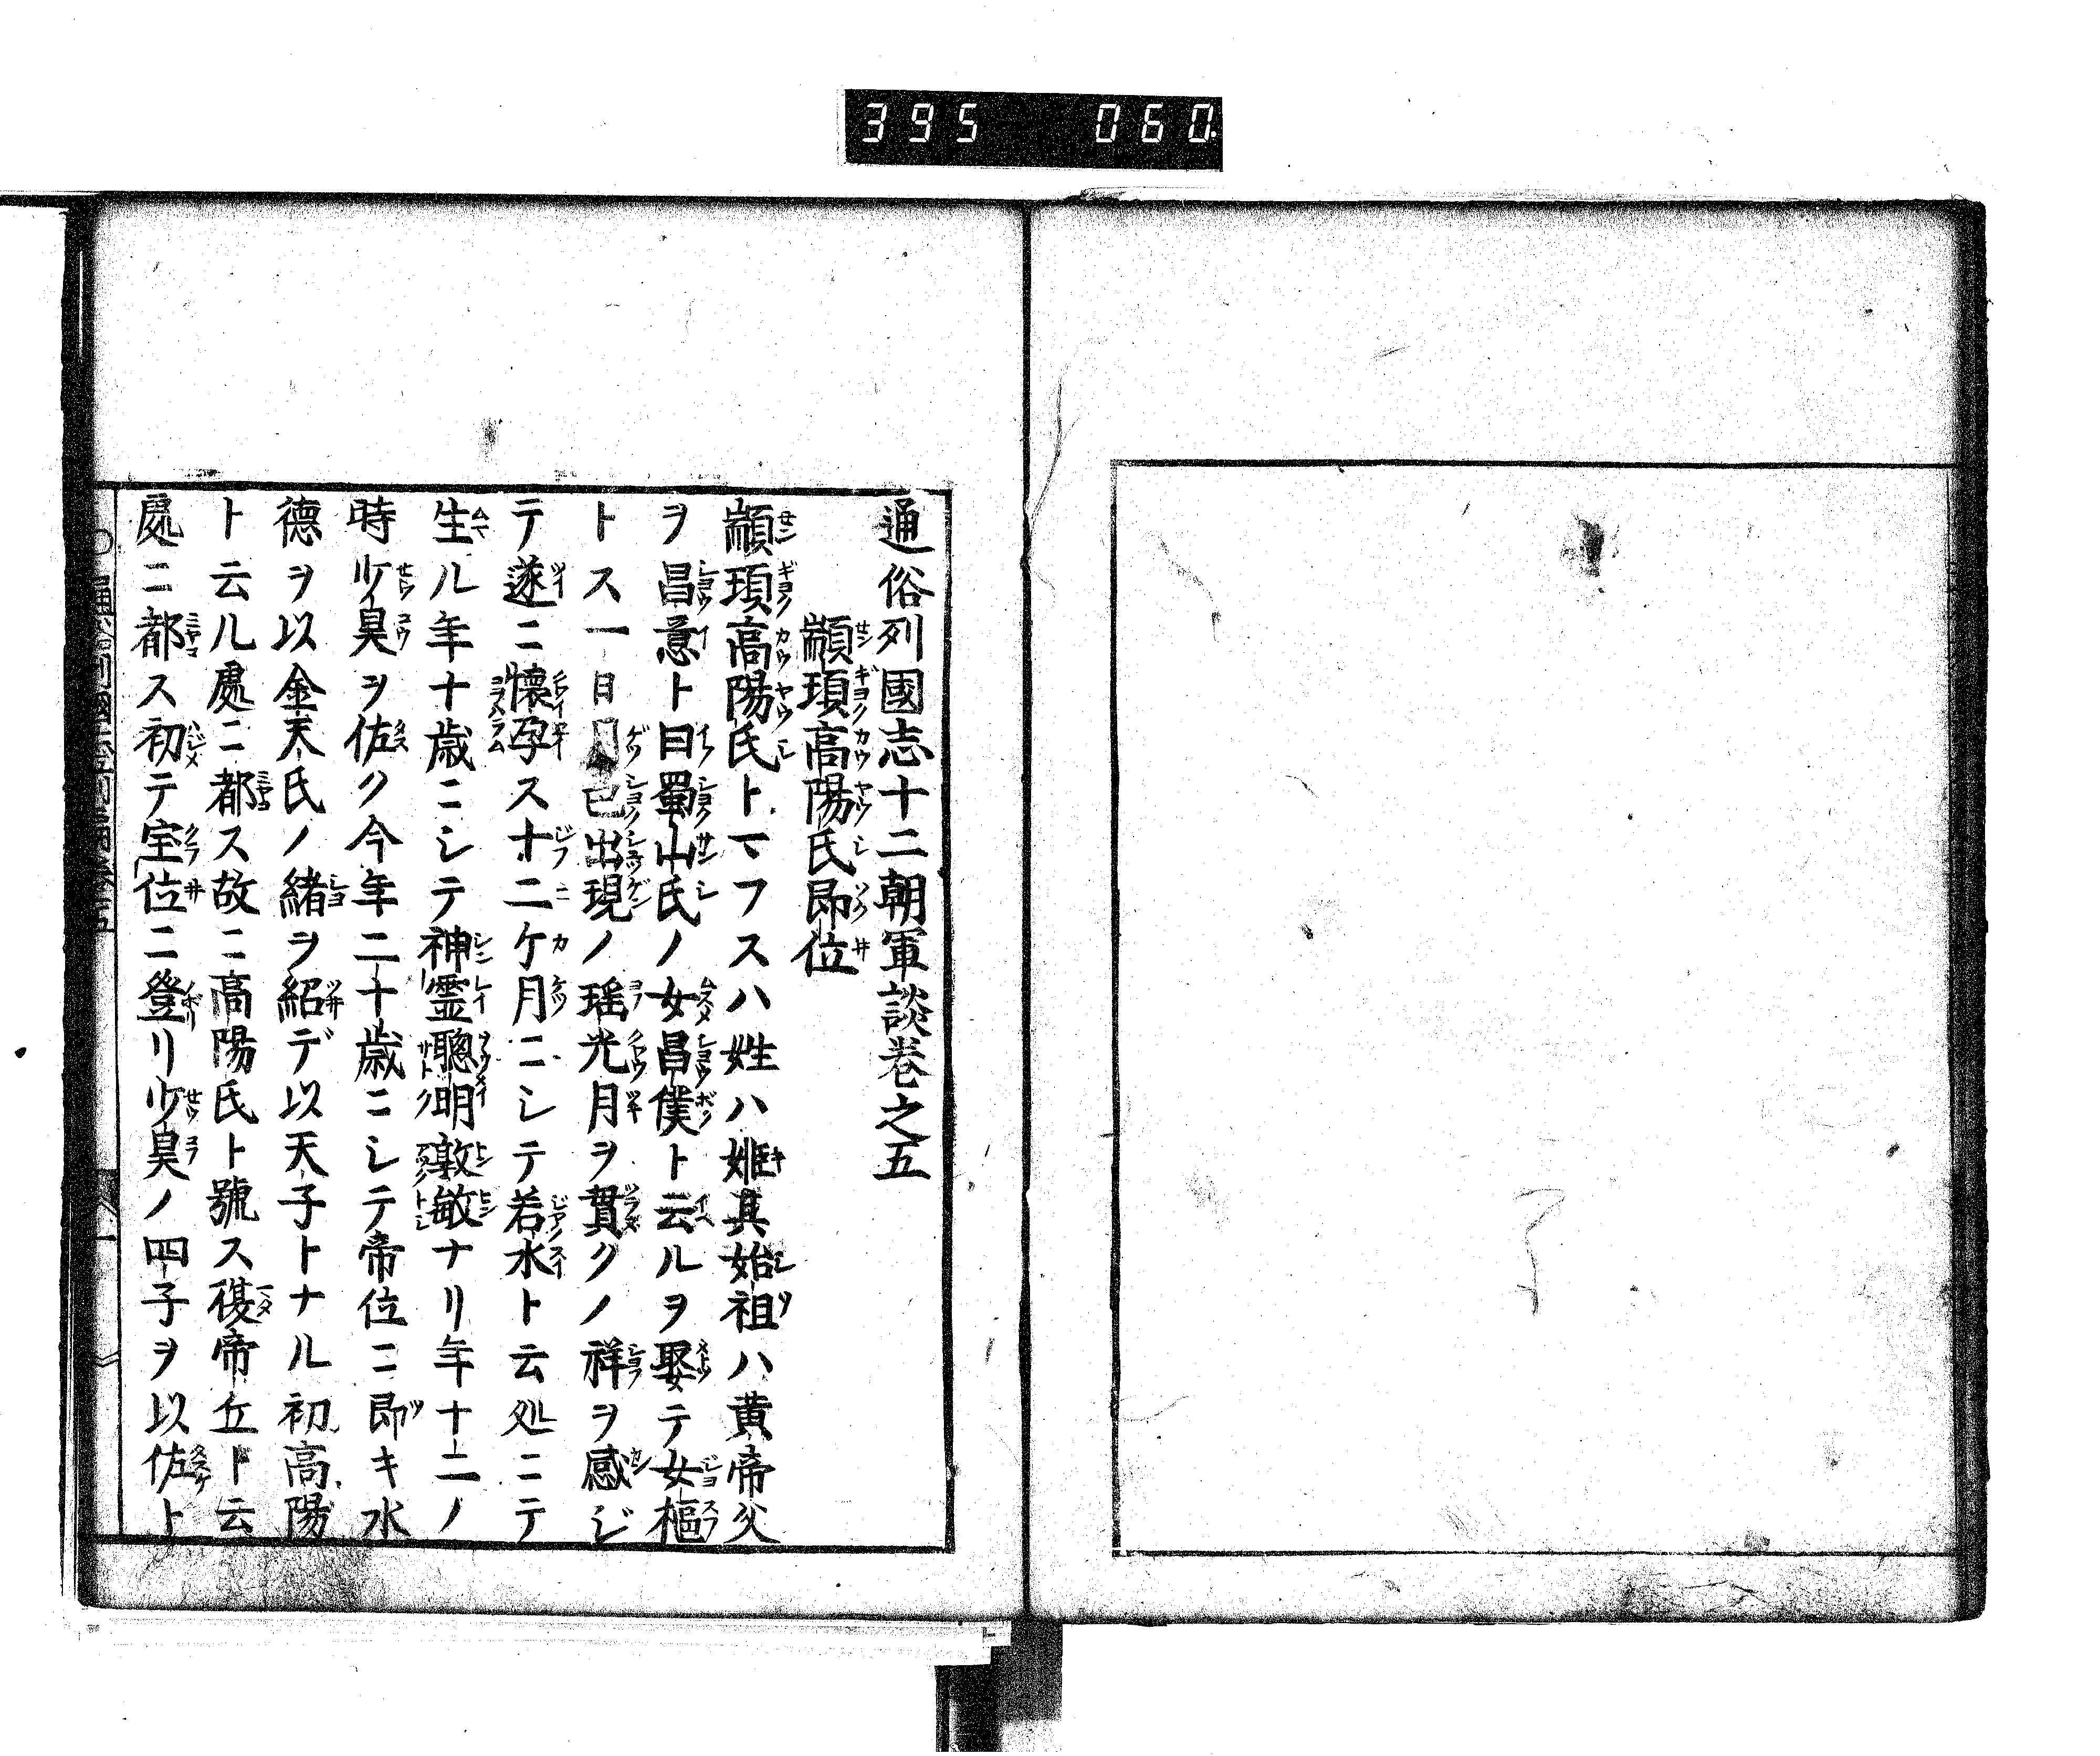 395 060
通俗列國志十二朝軍談卷之五
顓頊高陽氏即位
顓頊高陽氏トマフスハ姓ハ姫其始祖ハ黄帝父
ヲ昌意ト曰蜀山氏ノ女昌僕ト云ルヲ娶テ女樞
トス一日 已出現ノ瑶光月ヲ貫クノ祥ヲ感ジ
テ遂ニ懐孕ス十二ケ月ニシテ若水ト云処ニテ
生ル年十歳ニシテ神霊聰明敦敏ナリ年十二ノ
時少昊ヲ佐ク今年二十歳ニシテ帝位ニ即キ水
德ヲ以金天氏ノ緒ヲ紹デ以天子トナル初高陽
ト云ル處ニ都ス故ニ高陽氏ト號ス復帝丘ト云
處ニ都ス初テ宝位ニ登リ少昊ノ四子ヲ以佐ト